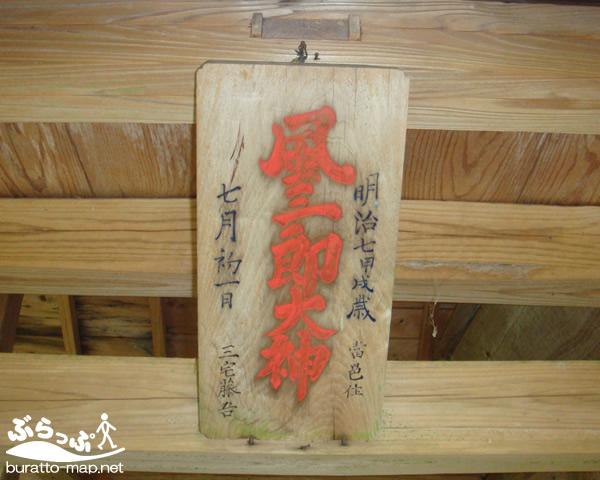 明治七甲戌歳
當邑住
風三郎大神
七月初一日
三宅藤吾
ぶらっぷ
buratto-map.net